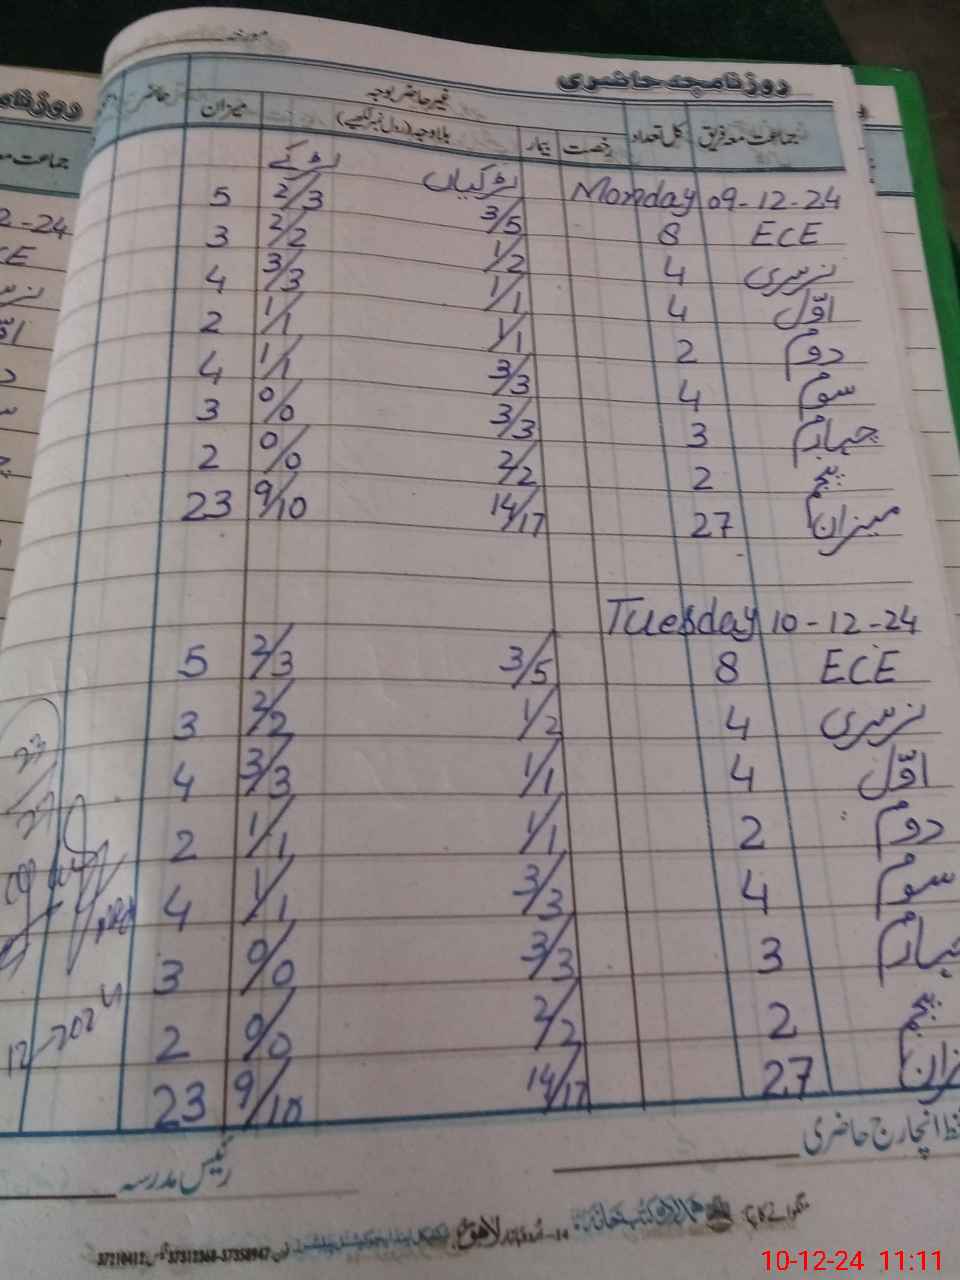 روزنامچہ حاضری
جماعت معہ فریق کل تعداد رخصت بیمار غیر حاضر بوجہ بلاوجہ (رول نمبر لکھیے) میزان حاضر
Monday 09-12-24 لڑکیاں لڑکے
ECE 8 3/5 2/3 5
نرسری 4 1/2 2/2 3
اوّل 4 1/1 3/3 4
دوم 2 1/1 1/1 2
سوم 4 3/3 1/1 4
چہارم 3 3/3 0/0 3
پنجم 2 2/2 0/0 2
میزان 27 14/17 9/10 23
Tuesday 10-12-24
ECE 8 3/5 2/3 5
نرسری 4 1/2 2/2 3
اوّل 4 1/1 3/3 4
دوم 2 1/1 1/1 2
سوم 4 3/3 1/1 4
چہارم 3 3/3 0/0 3
پنجم 2 2/2 0/0 2
میزان 27 14/17 9/10 23
23/27
12-2024
انچارج حاضری
رئیس مدرسہ
لاہور
37312368-37358947
10-12-24 11:11